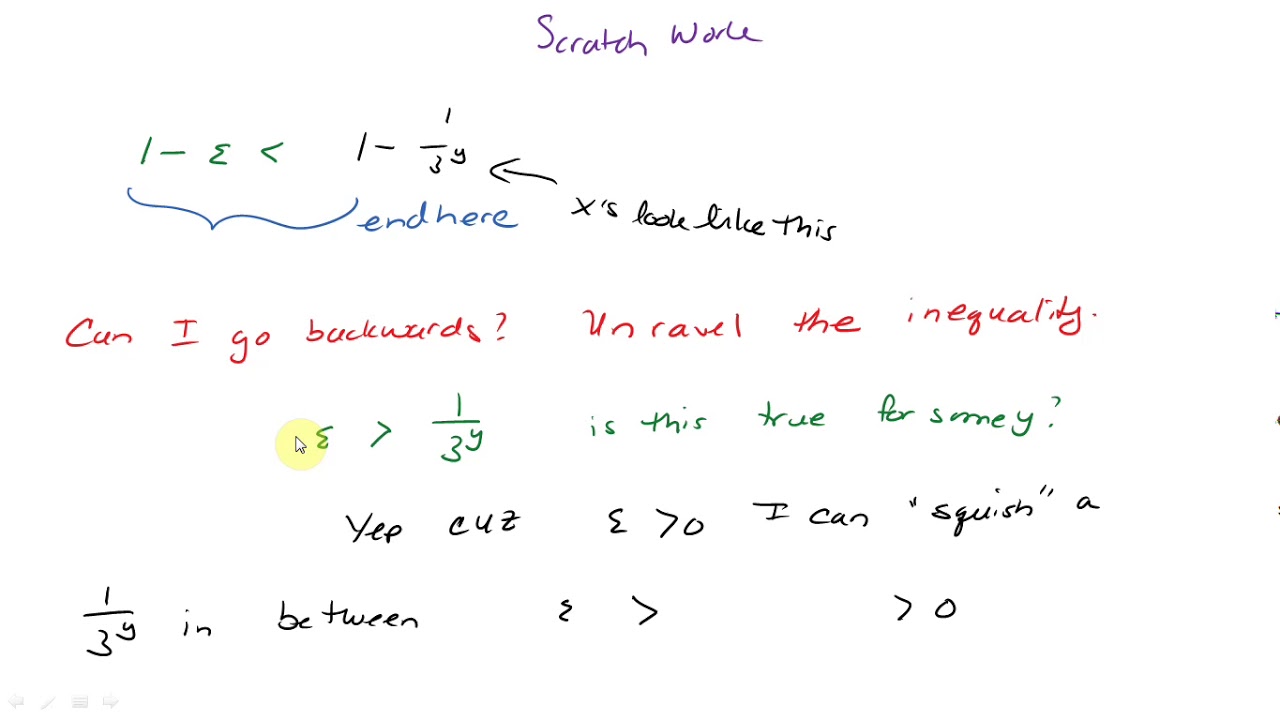 Scratch Work
1 - ε < 1 - 1/3^y
end here
x's look like this
Can I go backwards? Unravel the inequality.
ε > 1/3^y is this true for some y?
Yep cuz ε > 0 I can "squish" a
1/3^y in between ε > > 0